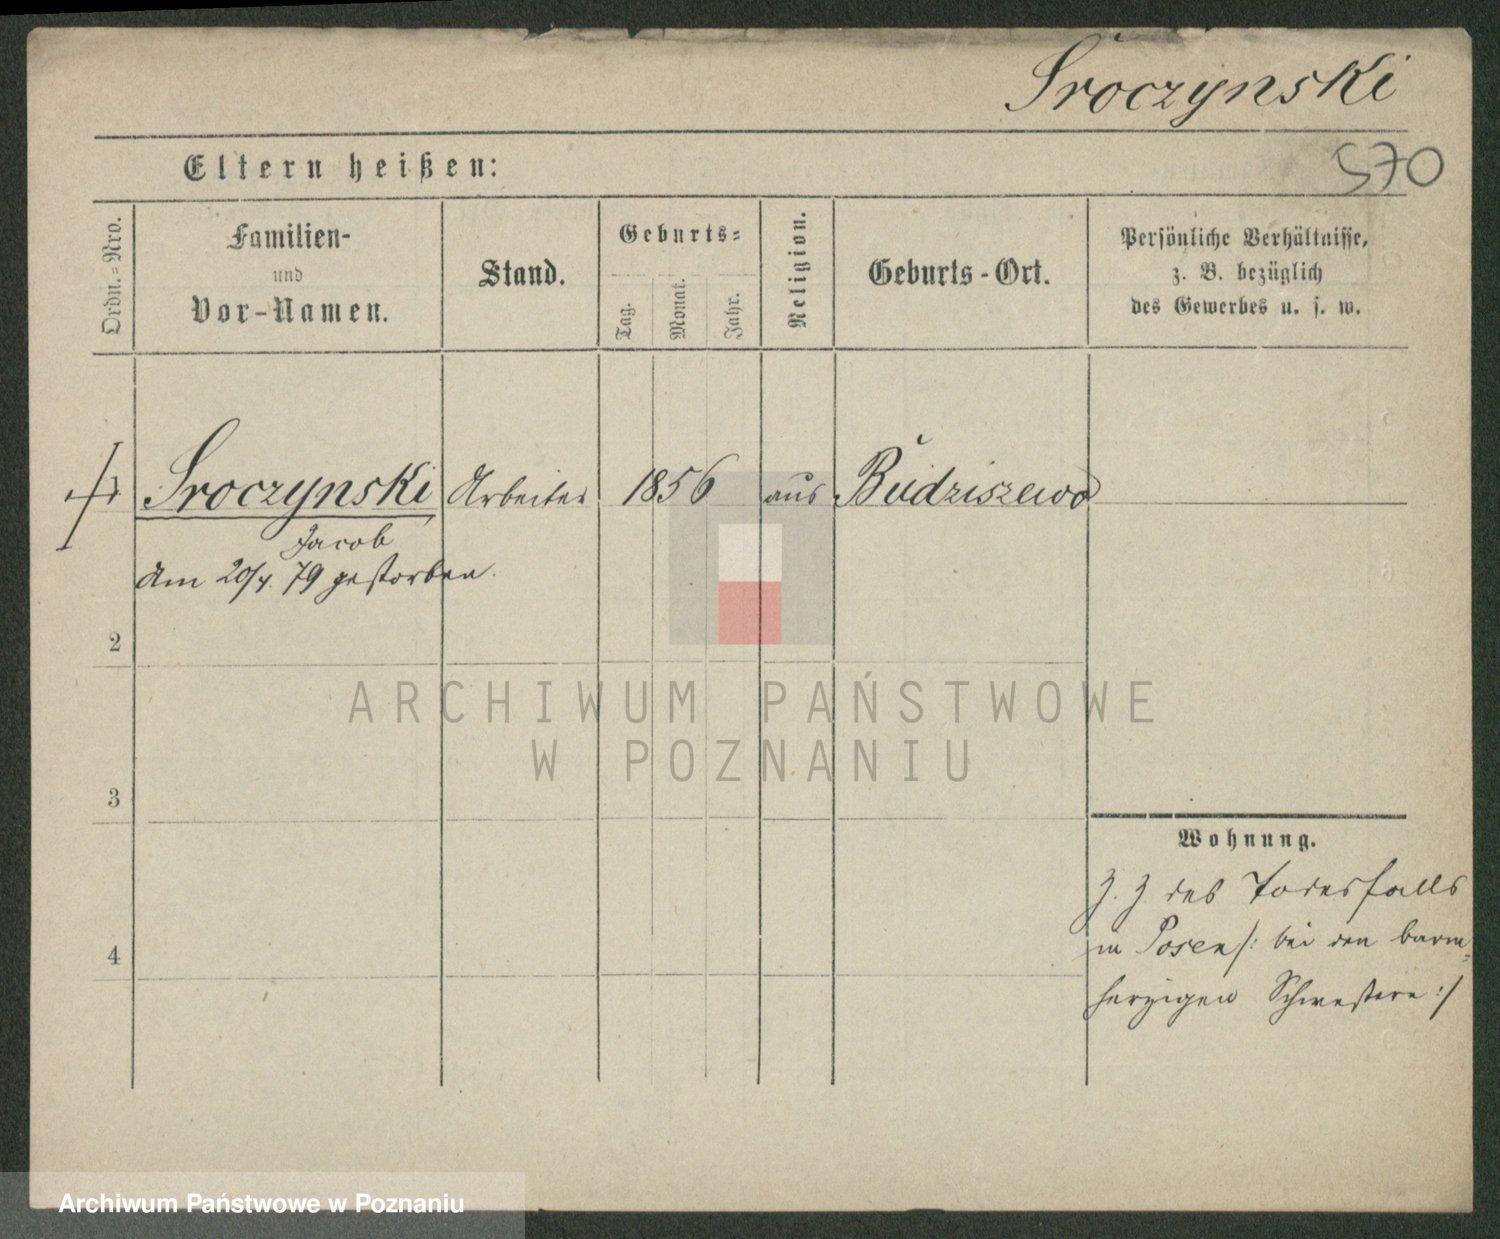 Sroczynski
570
Eltern heißen:
Ordn.-Nro.
Familien-
und
Vor-Namen.
Stand.
Geburts-
Tag.
Monat.
Jahr.
Religion.
Geburts-Ort.
Persönliche Verhältnisse,
z. B. bezüglich
des Gewerbes u. s. w.
1 Sroczynski Arbeiter 1856 aus Budziszewo
Jacob
Am 20/4. 79 gestorben.
2
3
4
Wohnung.
z. Z. des Todesfalls
in Posen /: bei den barm-
herzigen Schwestern :/
ARCHIWUM PAŃSTWOWE
W POZNANIU
Archiwum Państwowe w Poznaniu